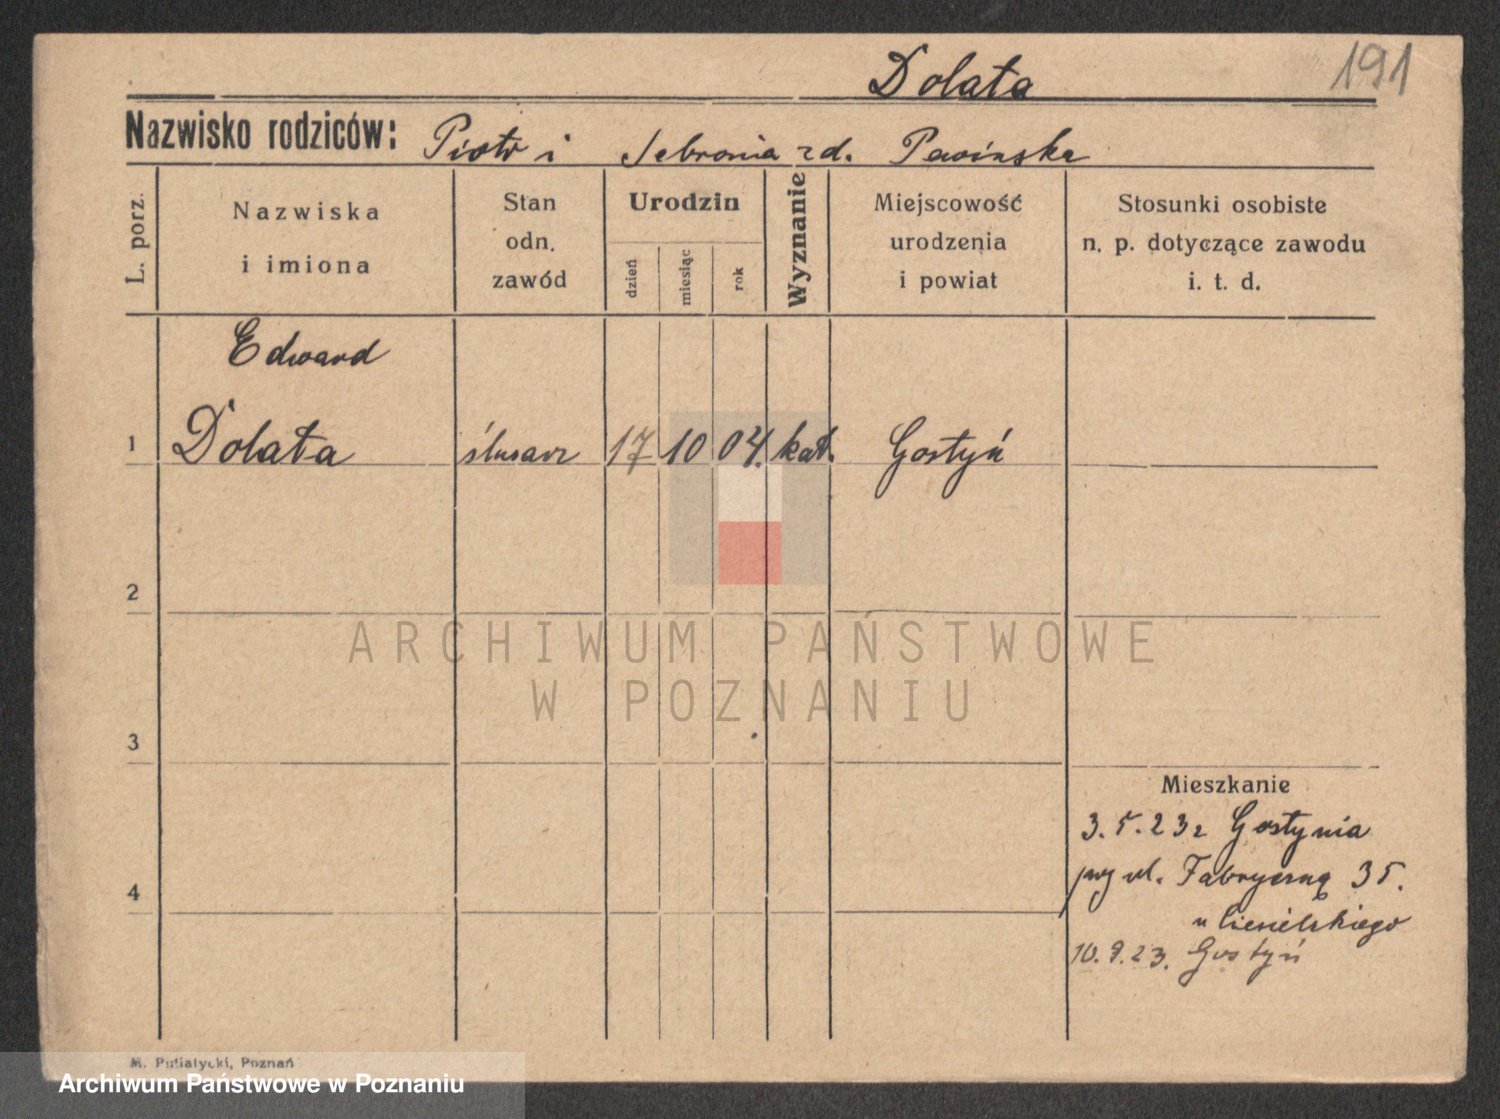 Dolata
191
Nazwisko rodziców: Piotr i Sebronia zd. Pawińska
L. porz.
Nazwiska
i imiona
Stan
odn.
zawód
Urodzin
dzień
miesiąc
rok
Wyznanie
Miejscowość
urodzenia
i powiat
Stosunki osobiste
n. p. dotyczące zawodu
i. t. d.
Edward
1 Dolata ślusarz 17 10 04. kat. Gostyń
2
ARCHIWUM PAŃSTWOWE
W POZNANIU
3
Mieszkanie
3.5.23 z Gostynia
4
ul. Fabryczną 35.
u Cieśielskiego
10.9.23. Gostyń
M. Putiatycki, Poznań
Archiwum Państwowe w Poznaniu